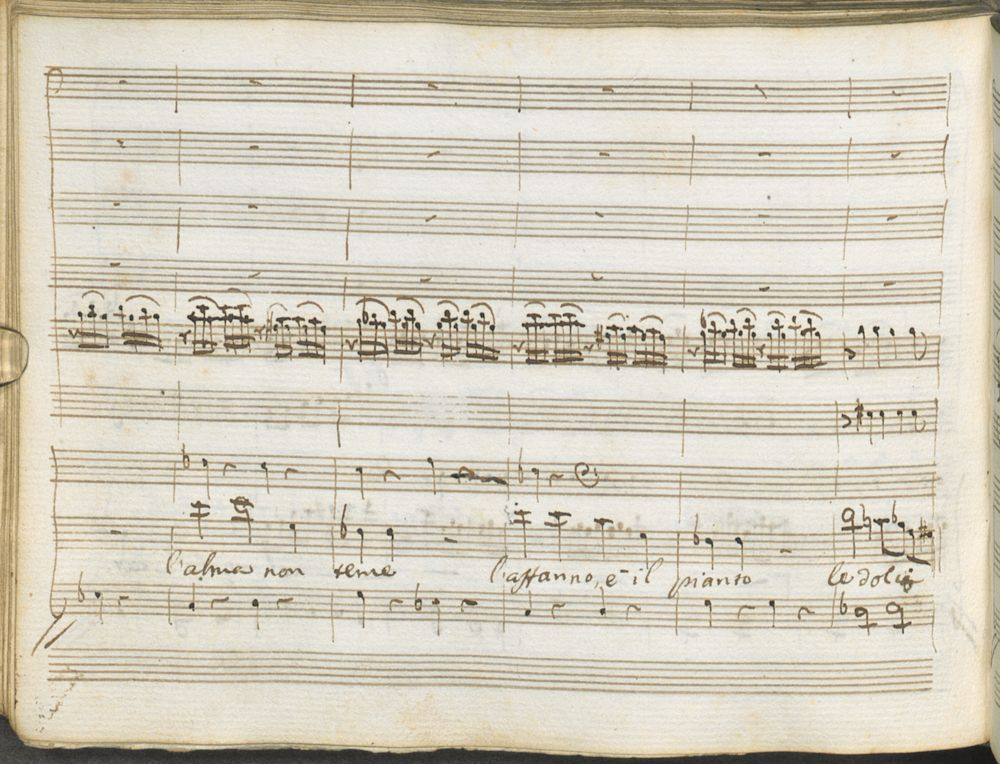 l'alma non teme l'affanno, è il pianto le dolci